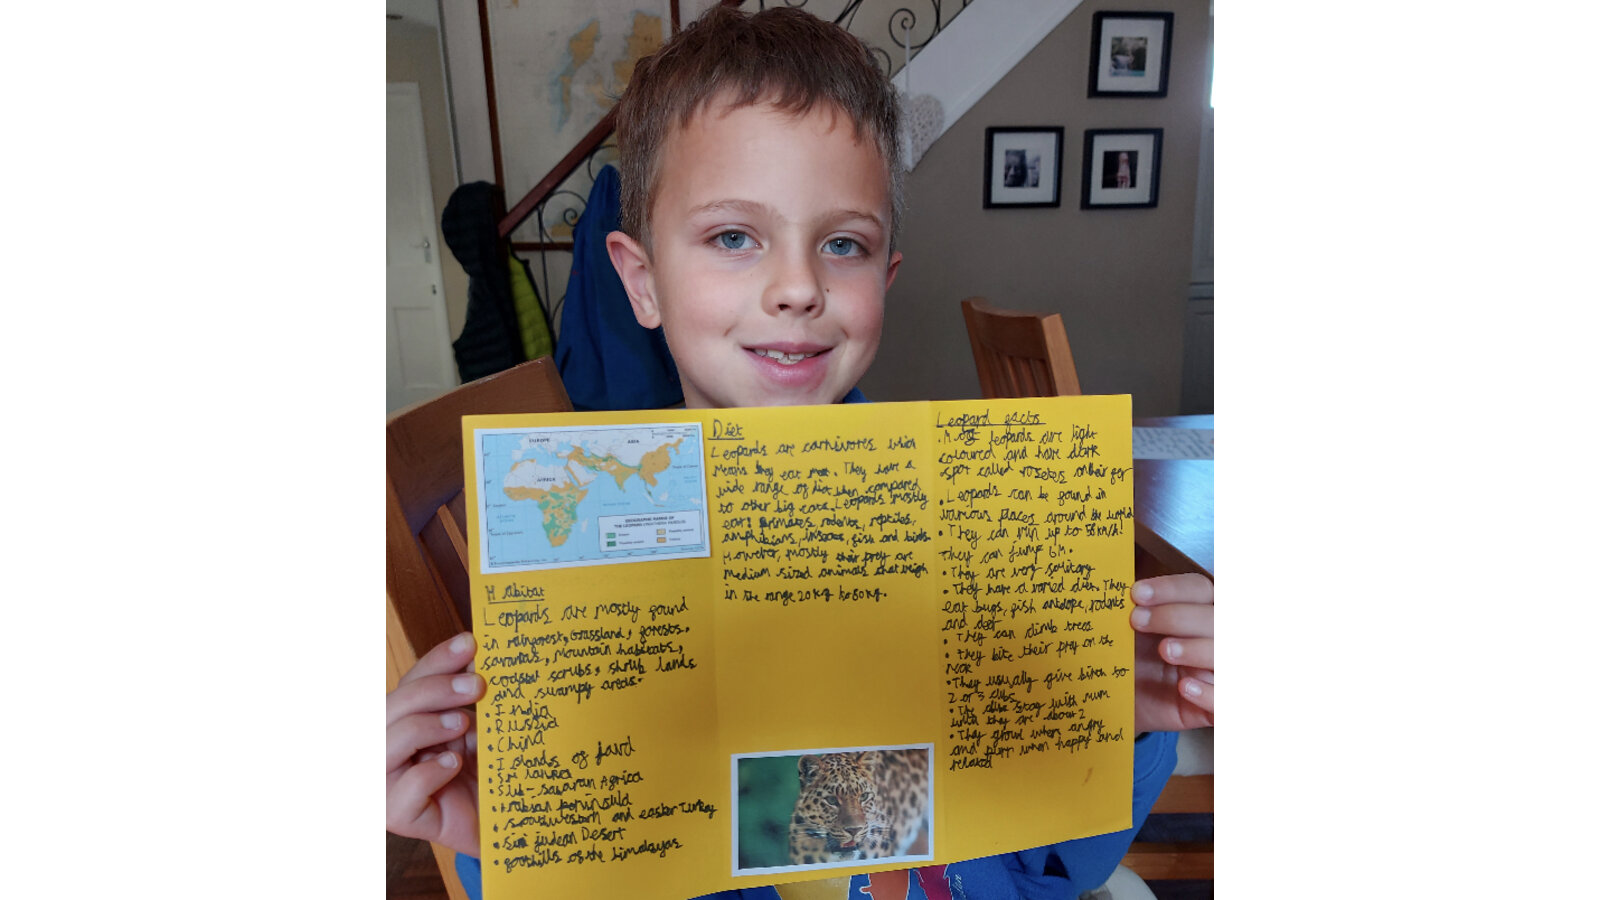 EUROPE
ASIA
AFRICA
GEOGRAPHIC RANGE OF
THE LEOPARD (PANTHERA PARDUS)
Habitat
Leopards are mostly found
in rainforest, Grassland, forests,
savannas, mountain habitats,
coastal scrubs, shrub lands
and swampy areas.
• India
• Russia
• China
• Islands of Java
• Sri lanka
• Sub-saharan Africa
• Arabian peninsula
• southwestern and easter Turkey
• judean Desert
• foothills of the himalayas
Diet
Leopards are carnivores which
means they eat meat. They have a
wide range of diet when compared
to other big cats. Leopards mostly
eat: primates, rodents, reptiles,
amphibians, insects, fish and birds.
However, mostly their prey are
medium sized animals that weigh
in the range 20 kg to 80 kg.
Leopard facts
• Most leopards are light
coloured and have dark
spot called rosetes on their fer
• Leopards can be found in
various places around the world
• They can run up to 58 km/h!
They can jump 6 M.
• They are very solitary
• They have a varied diet. They
eat bugs, fish antelope, rodents
and deer
• They can climb trees
• They bite their prey on the
neck
• They usually give birth to
2 or 3 cubs
• The cubs stay with mum
until they are about 2
• They growl when angry
and purr when happy and
relaxed